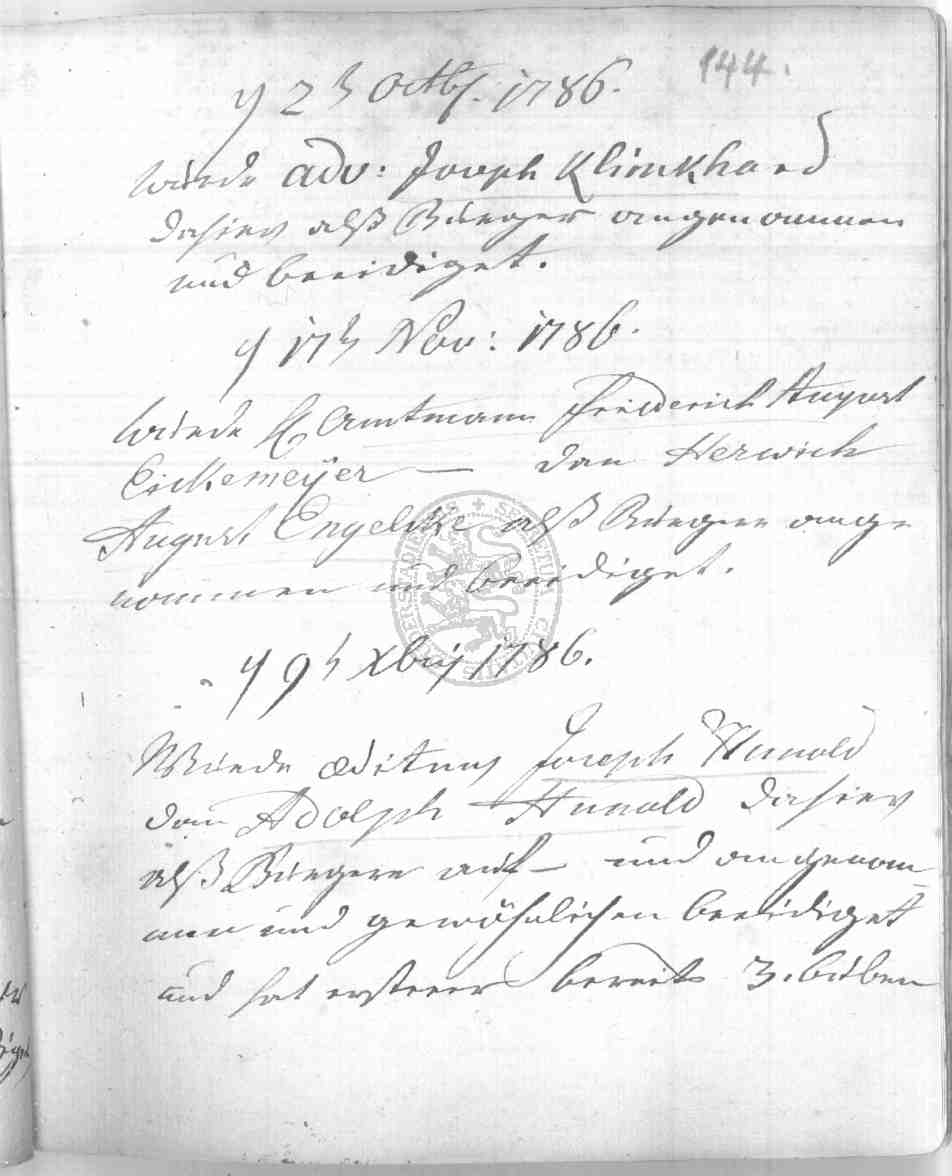 144.
d 2t Octbr. 1786.
wurde adv: Joseph Klinkhard
dahier alß Bürger angenommen
und beeidiget.
d 17t Nov: 1786.
wurde H. Amtmann Friederich August
Eickemeyer — dan Herwich
August Engelcke alß Bürgere ange
nommen und beeidiget.
d 9t Xbris 1786.
Wurde ædituus Joseph Hunold
dan Adolph Hunold dahier
alß Bürgere auf- und angenom-
men und gewöhnlichen beeidiget
und hat ersterer bereits 3. buben